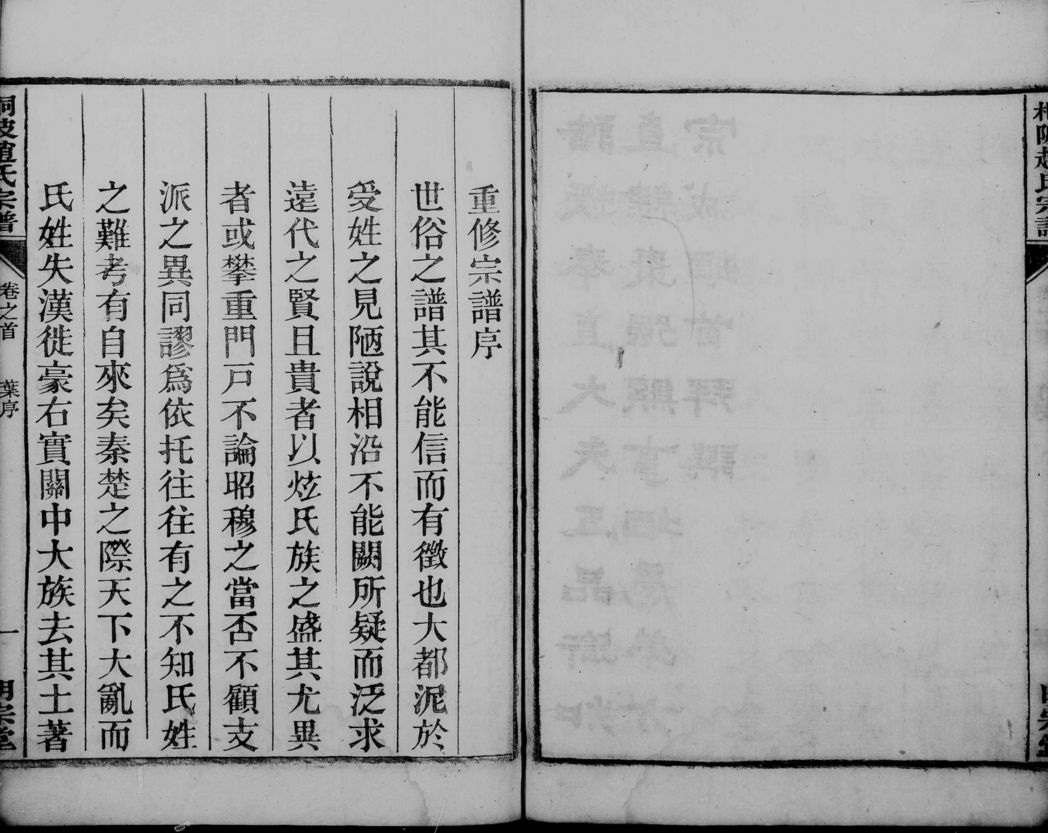 趙氏宗
重修宗譜序
世俗之譜其不能信而有徵也大都泥於
受姓之見陋說相沿不能闕所疑而泛求
遠代之賢且貴者以炫氏族之盛其尤異
者或攀重門戸不論昭穆之當否不顧支
派之異同謬爲依托往往有之不知氏姓
之難考有自來矣秦楚之際天下大亂而
氏姓失漢徙豪右實關中大族去其土著
陂趙氏宗譜 卷之首 葉序 一 宗堂